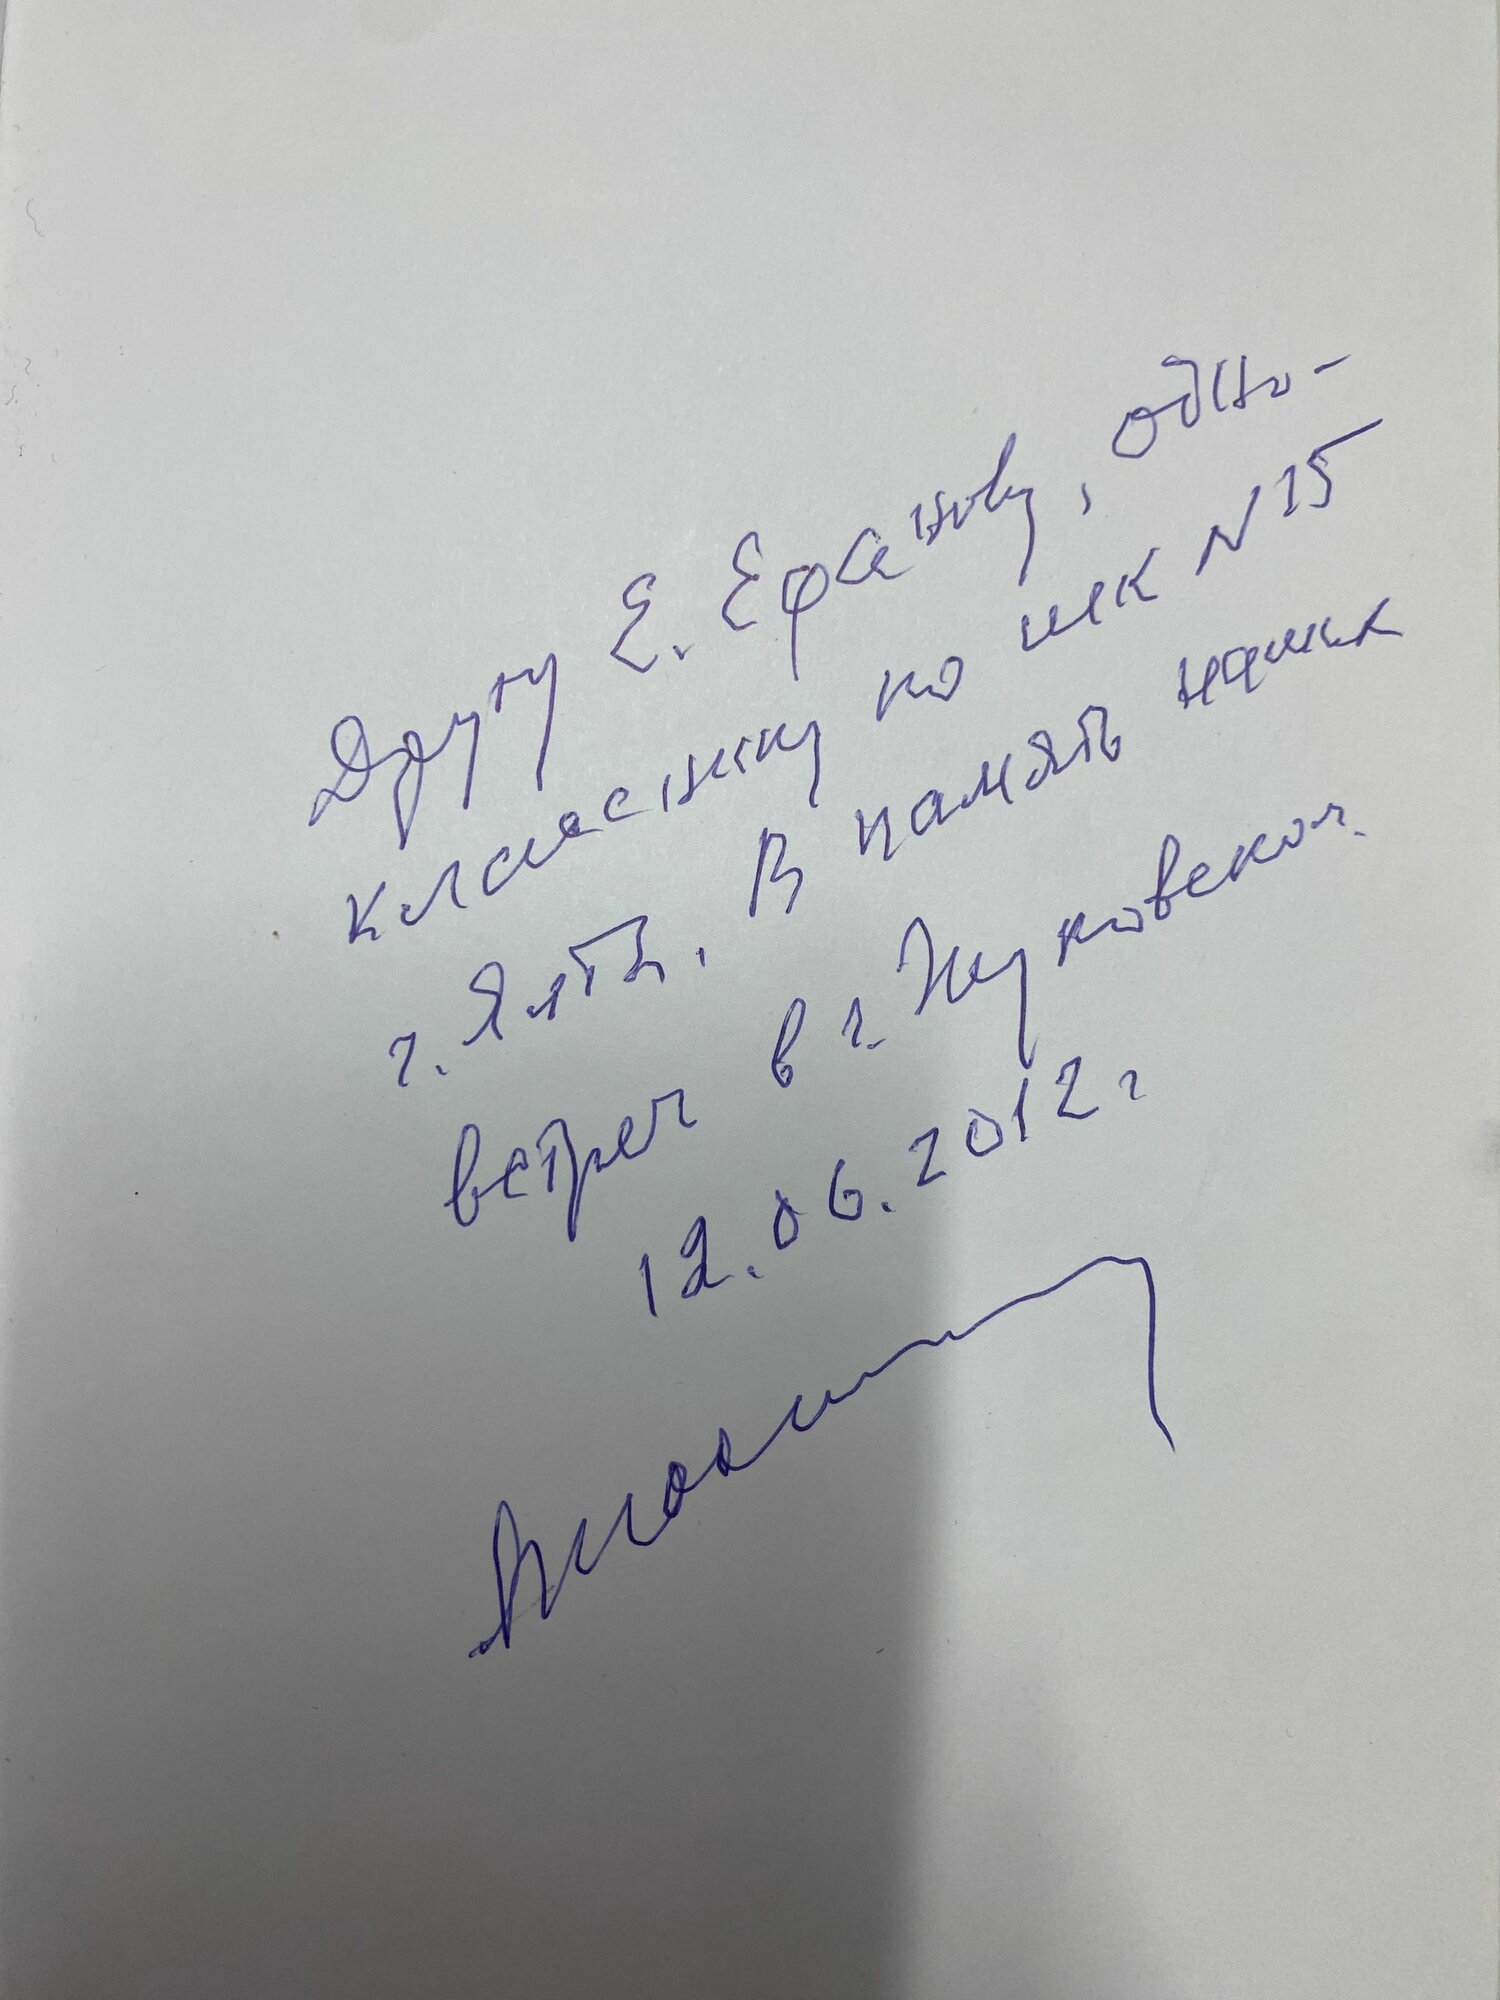 Другу Е. Ефанову, одно-
класснику по шк N 15
г. Ялты. В память наших
встреч в г. Жуковском.
12.06.2012 г